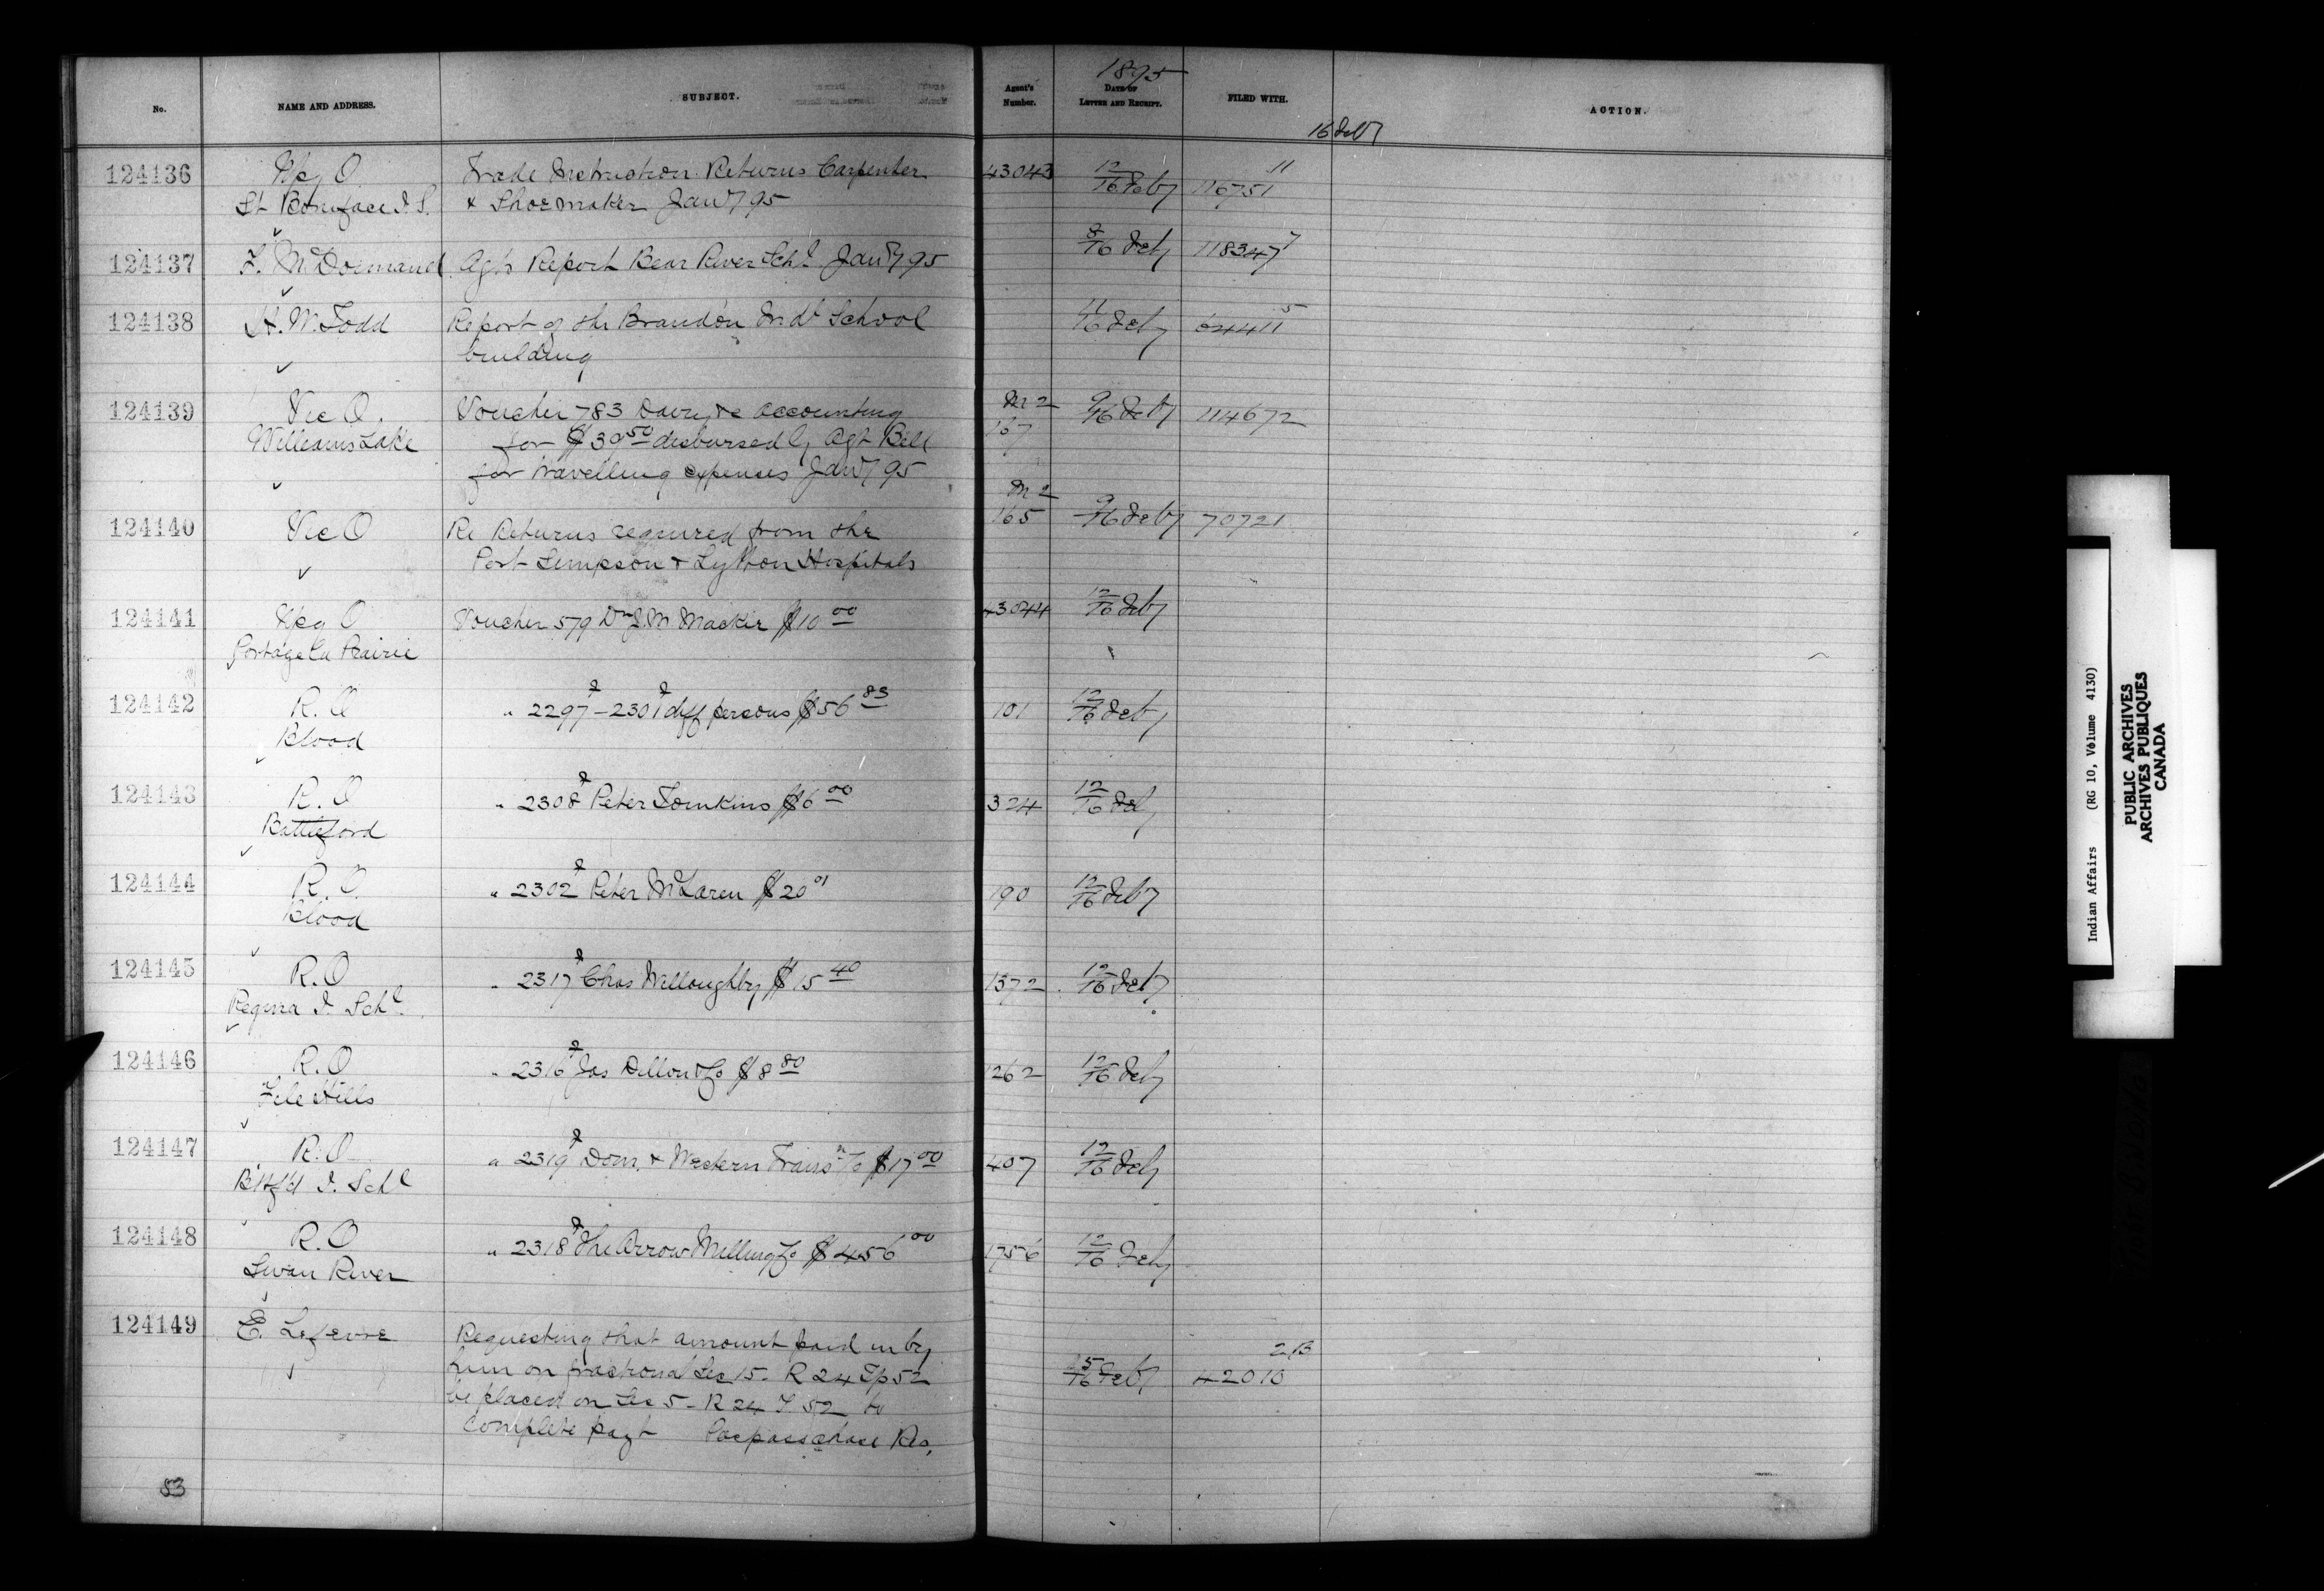 1895
No. NAME AND ADDRESS. SUBJECT. Agent's Number. DATE OF LETTER AND RECEIPT. FILED WITH. ACTION.
16 Feby
124136 Wpg O Trade Instruction Returns Carpenter 43043 12/16 Feby 116751 11
St Boniface I. S. & Shoemaker Jany 95
124137 F. McDormand Agts Report Bear River Schl Jany 95 8/16 Feby 118347 7
124138 H. W. Todd Report of the Brandon Indl School 11/16 Feby 64411 5
building
124139 Vic O. Voucher 783 &c accounting M2 9/16 Feby 114672
Williams Lake for $30 50 disbursed by Agt Bell 167
for travelling expenses Jany 95
124140 Vic O Re Returns required from the M2 165 9/16 Feby 70721
Port Simpson & Lytton Hospitals
124141 Wpg O Voucher 579 Dr J. M. Mackie $10 00 43044 12/16 Feby
Portage la Prairie
124142 R. O " 2297 - 2301 diff persons $56 83 101 12/16 Feby
Blood
124143 R. O " 2308 Peter Tomkins $6 00 324 12/16 Feby
Battleford
124144 R. O. " 2302 Peter McLaren $20 01 190 12/16 Feby
Blood
124145 R. O " 2317 Chas Willoughby $15 40 1372 12/16 Feby
Regina I. Schl.
124146 R. O " 2316 Jas Dillon & Co $8 80 1262 12/16 Feby
File Hills
124147 R. O " 2319 Dom. & Western Transn Co $17 00 407 12/16 Feby
B'tlf'd I. Schl
124148 R. O " 2318 The Arrow Milling Co $456 00 1756 12/16 Feby
Swan River
124149 E. Lefevre Requesting that amount paid in by
him on fractional Sec 15. R 24 Tp 52 5/16 Feby 42010 213
be placed on Sec 5 - R 24 T 52 to
complete payt Paspasschase Res.
83
Indian Affairs (RG 10, Volume 4130)
PUBLIC ARCHIVES
ARCHIVES PUBLIQUES
CANADA